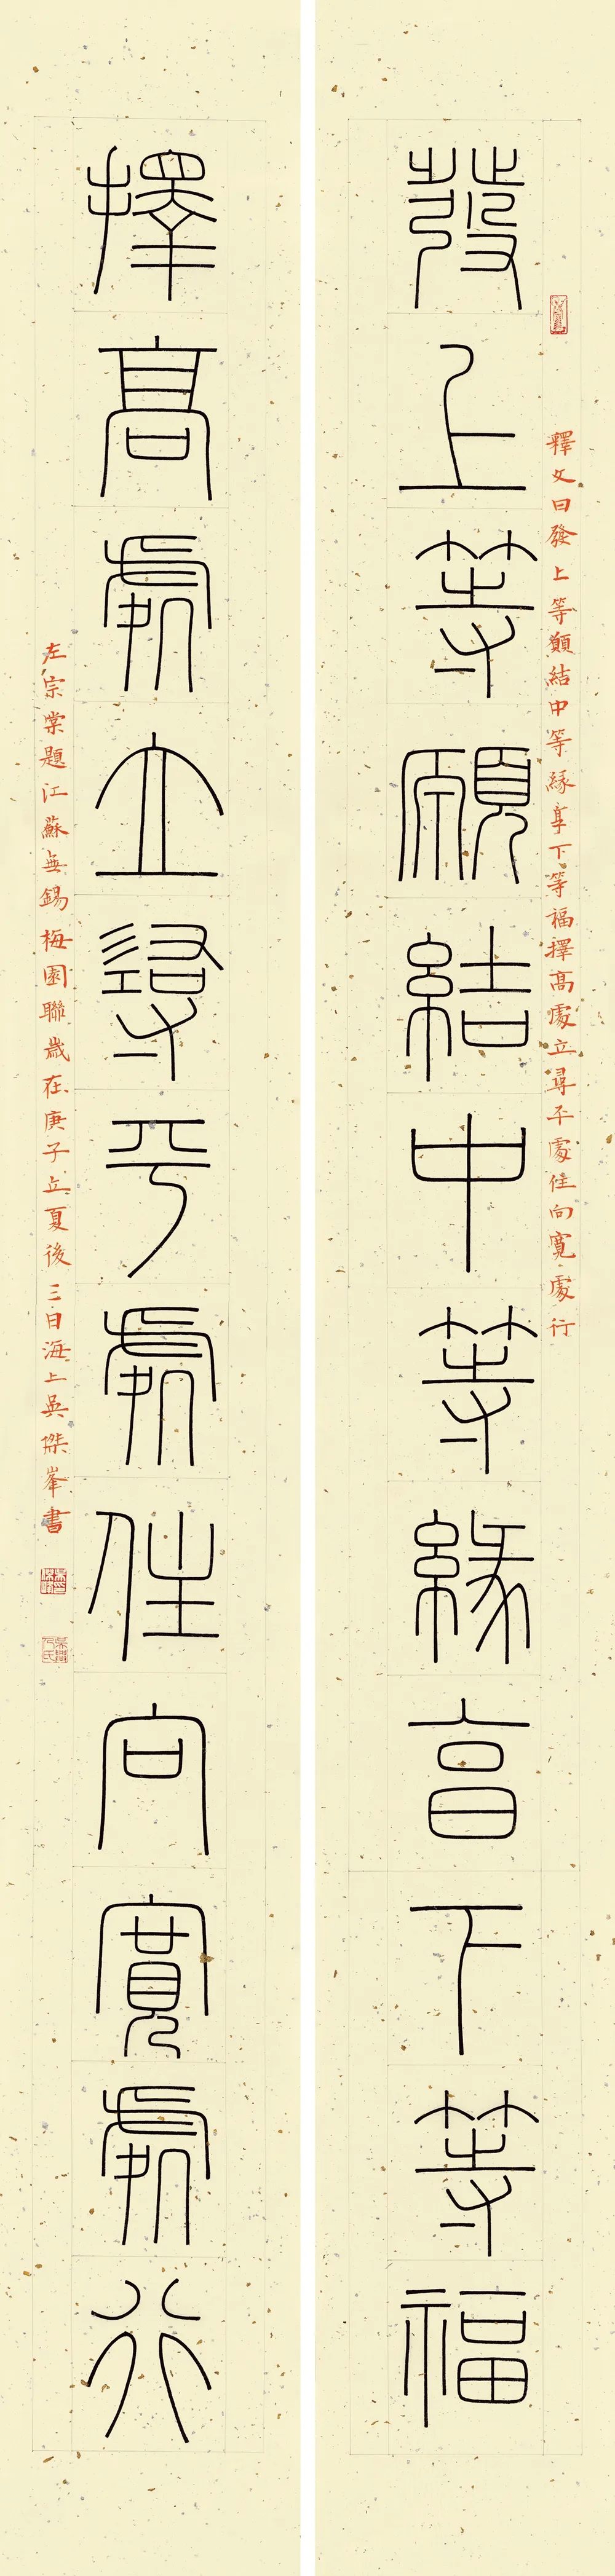 釋文曰發上等願結中等緣享下等福擇高處立尋平處住向寬處行
發上等願結中等緣享下等福
擇高處立尋平處住向寬處行
左宗棠題江蘇無錫梅園聯歲在庚子立夏後三日海上吳傑峯書